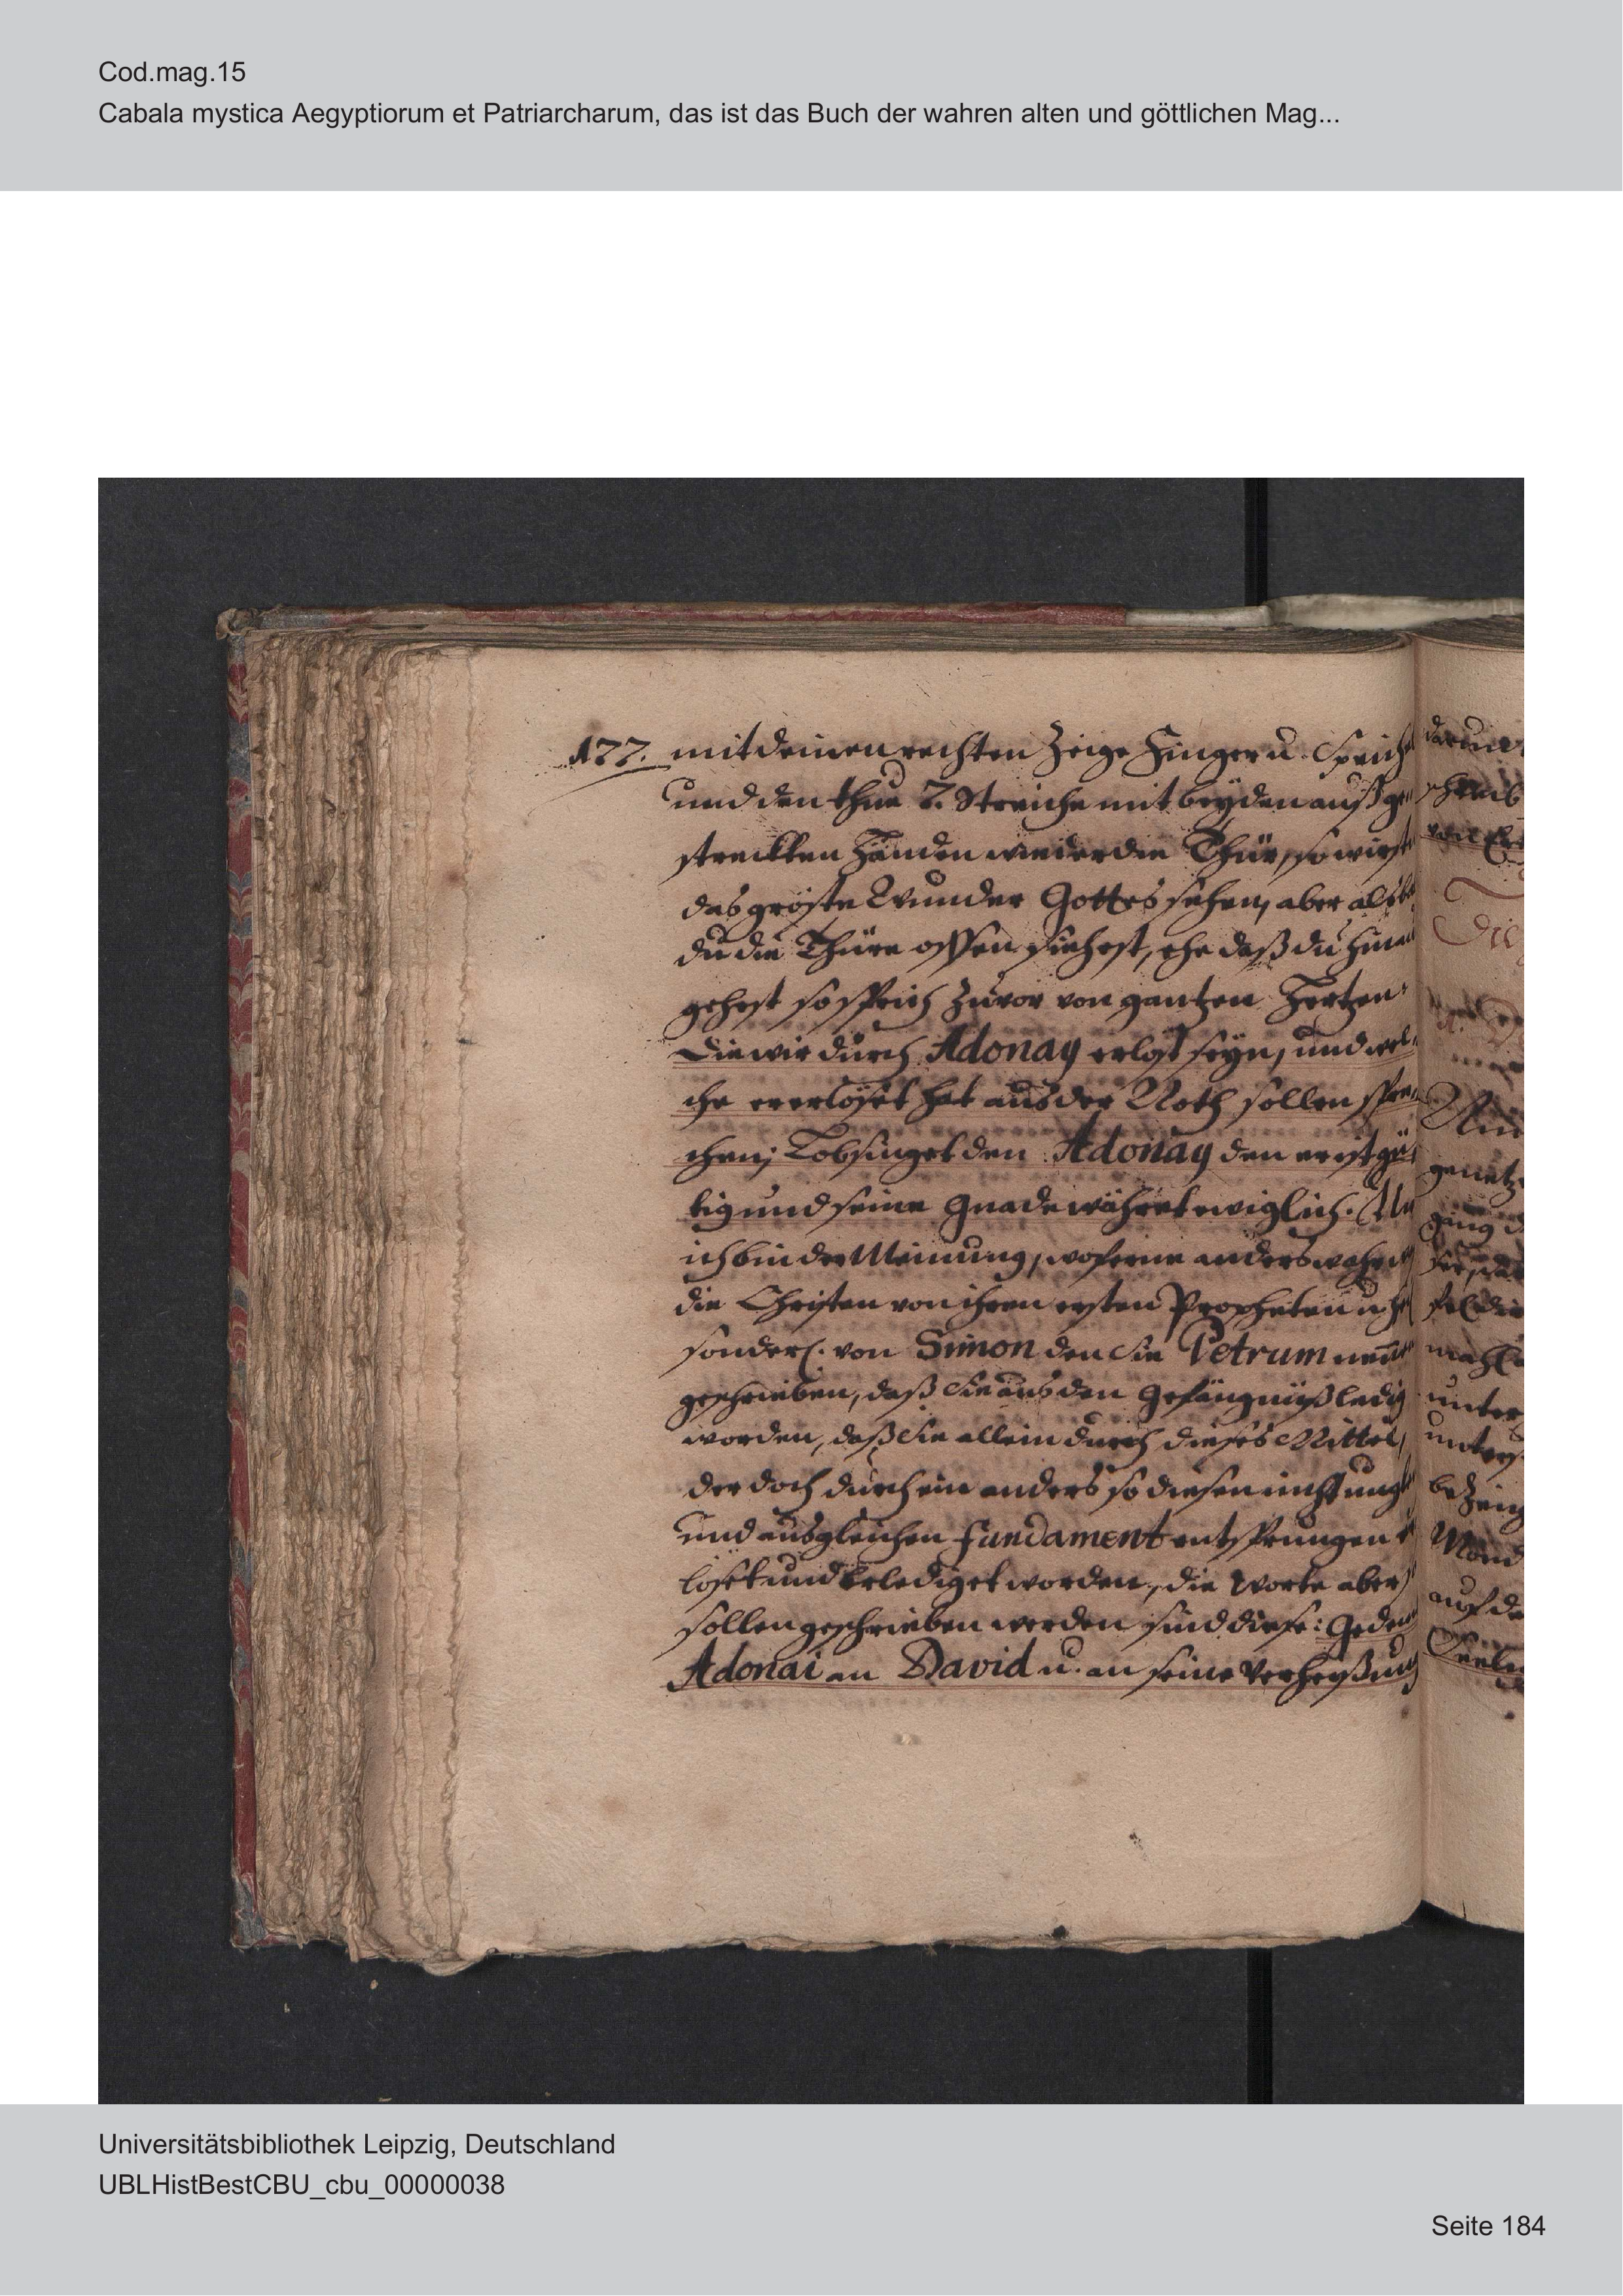 Cod.mag.15
Cabala mystica Aegyptiorum et Patriarcharum, das ist das Buch der wahren alten und göttlichen Mag...
177. mit deinen rechten Zeige Finger u. Sprich
und den thue 7. Streiche mit beyden außge
streckten Händen wieder die Thür, so wirst
das gröste Wunder Gottes sehen, aber alsb
du die Thüre offen siehest, ehe daß du hinei
gehest so sprich zuvor von gantzen Hertzen.
Die wir durch Adonay erlöst seyn, und wel-
che er erlöset hat aus der Noth sollen spre-
chen; Lobsinget den Adonay den er ist gü-
tig und seine Gnade währet ewiglich.
ich bin der Meinung, woferne anders wahr
die Christen von ihren ersten Propheten u.
sonderl. von Simon den Sie Petrum nen
geschrieben, daß Sie aus den Gefängnüß ledig
worden, daß Sie allein durch dieses Mittel,
der doch durch ein anders so diesen nicht ungl
und aus gleichen fundament entsprungen
löset und erlediget worden, die Worte aber
sollen geschrieben werden sind diese: Geden
Adonai an David u. an seine Verheyßung
Universitätsbibliothek Leipzig, Deutschland
UBLHistBestCBU_cbu_00000038
Seite 184